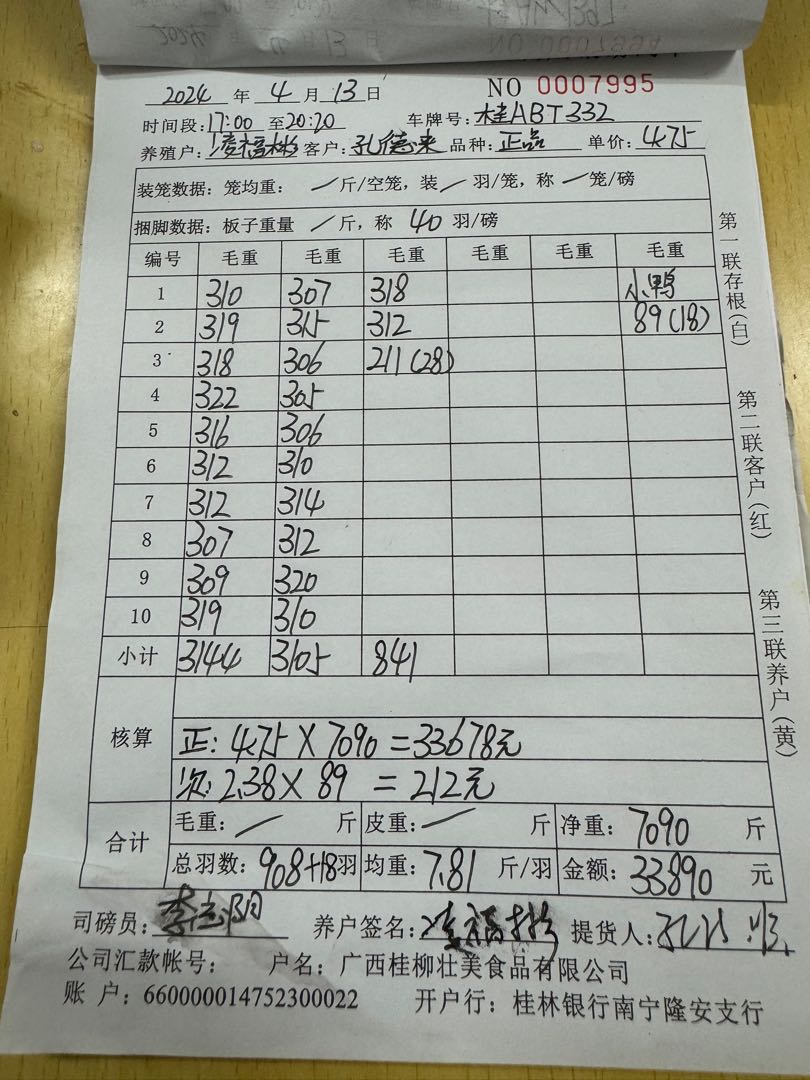 NO 0007995
2024 年 4 月 13 日
时间段: 17:00 至 20:20 车牌号: 桂ABT332
养殖户: 凌福彬 客户: 孔德来 品种: 正品 单价: 4.75
装笼数据: 笼均重: / 斤/空笼, 装 / 羽/笼, 称 / 笼/磅
捆脚数据: 板子重量 / 斤, 称 40 羽/磅
编号 毛重 毛重 毛重 毛重 毛重 毛重
1 310 307 318 小鸭
2 319 315 312 89(18)
3 318 306 211(28)
4 322 305
5 316 306
6 312 310
7 312 314
8 307 312
9 309 320
10 319 310
小计 3144 3105 841
核算
正: 4.75 × 7090 = 33678元
次: 2.38 × 89 = 212元
合计
毛重: / 斤 皮重: / 斤 净重: 7090 斤
总羽数: 908+18羽 均重: 7.81 斤/羽 金额: 33890 元
司磅员: 养户签名: 凌福彬 提货人:
公司汇款帐号: 户名: 广西桂柳壮美食品有限公司
账 户: 660000014752300022 开户行: 桂林银行南宁隆安支行
第一联存根(白)
第二联客户(红)
第三联养户(黄)